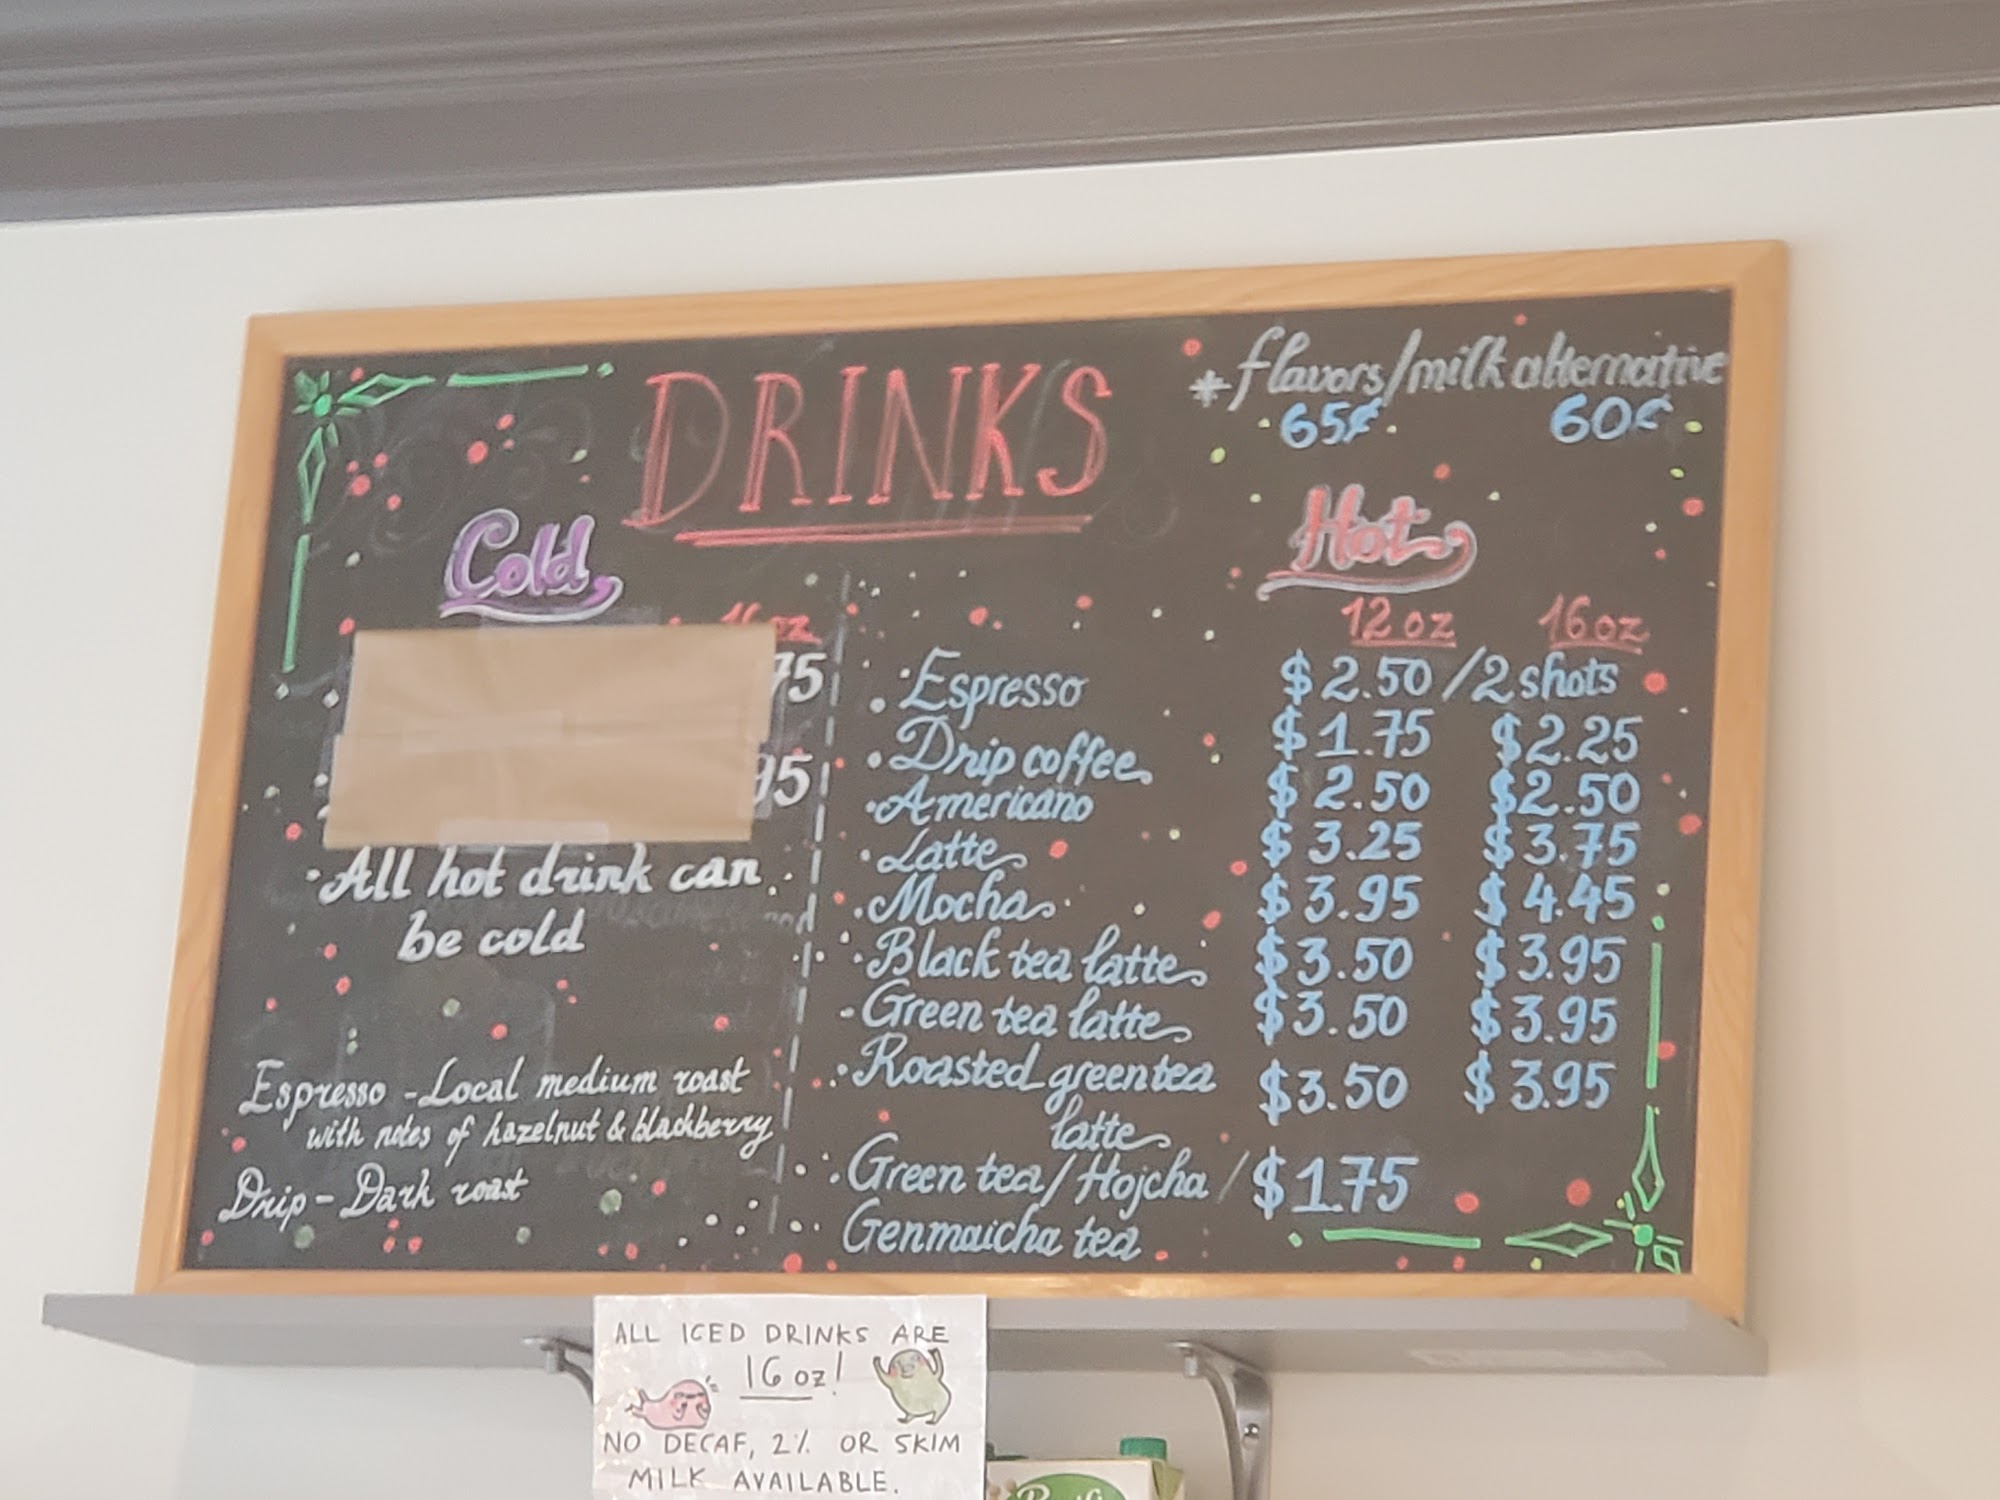 DRINKS
* flavors/milk alternative
65¢ 60¢
Cold
16oz
75
95
·All hot drink can
be cold
Espresso - Local medium roast
with notes of hazelnut & blackberry
Drip - Dark roast
Hot
12 oz 16 oz
·Espresso $2.50/2 shots
·Drip coffee $1.75 $2.25
·Americano $2.50 $2.50
·Latte $3.25 $3.75
·Mocha $3.95 $4.45
·Black tea latte $3.50 $3.95
·Green tea latte $3.50 $3.95
·Roasted green tea $3.50 $3.95
latte
·Green tea/Hojcha/ $1.75
Genmaicha tea
ALL ICED DRINKS ARE
16 oz!
NO DECAF, 2% OR SKIM
MILK AVAILABLE.